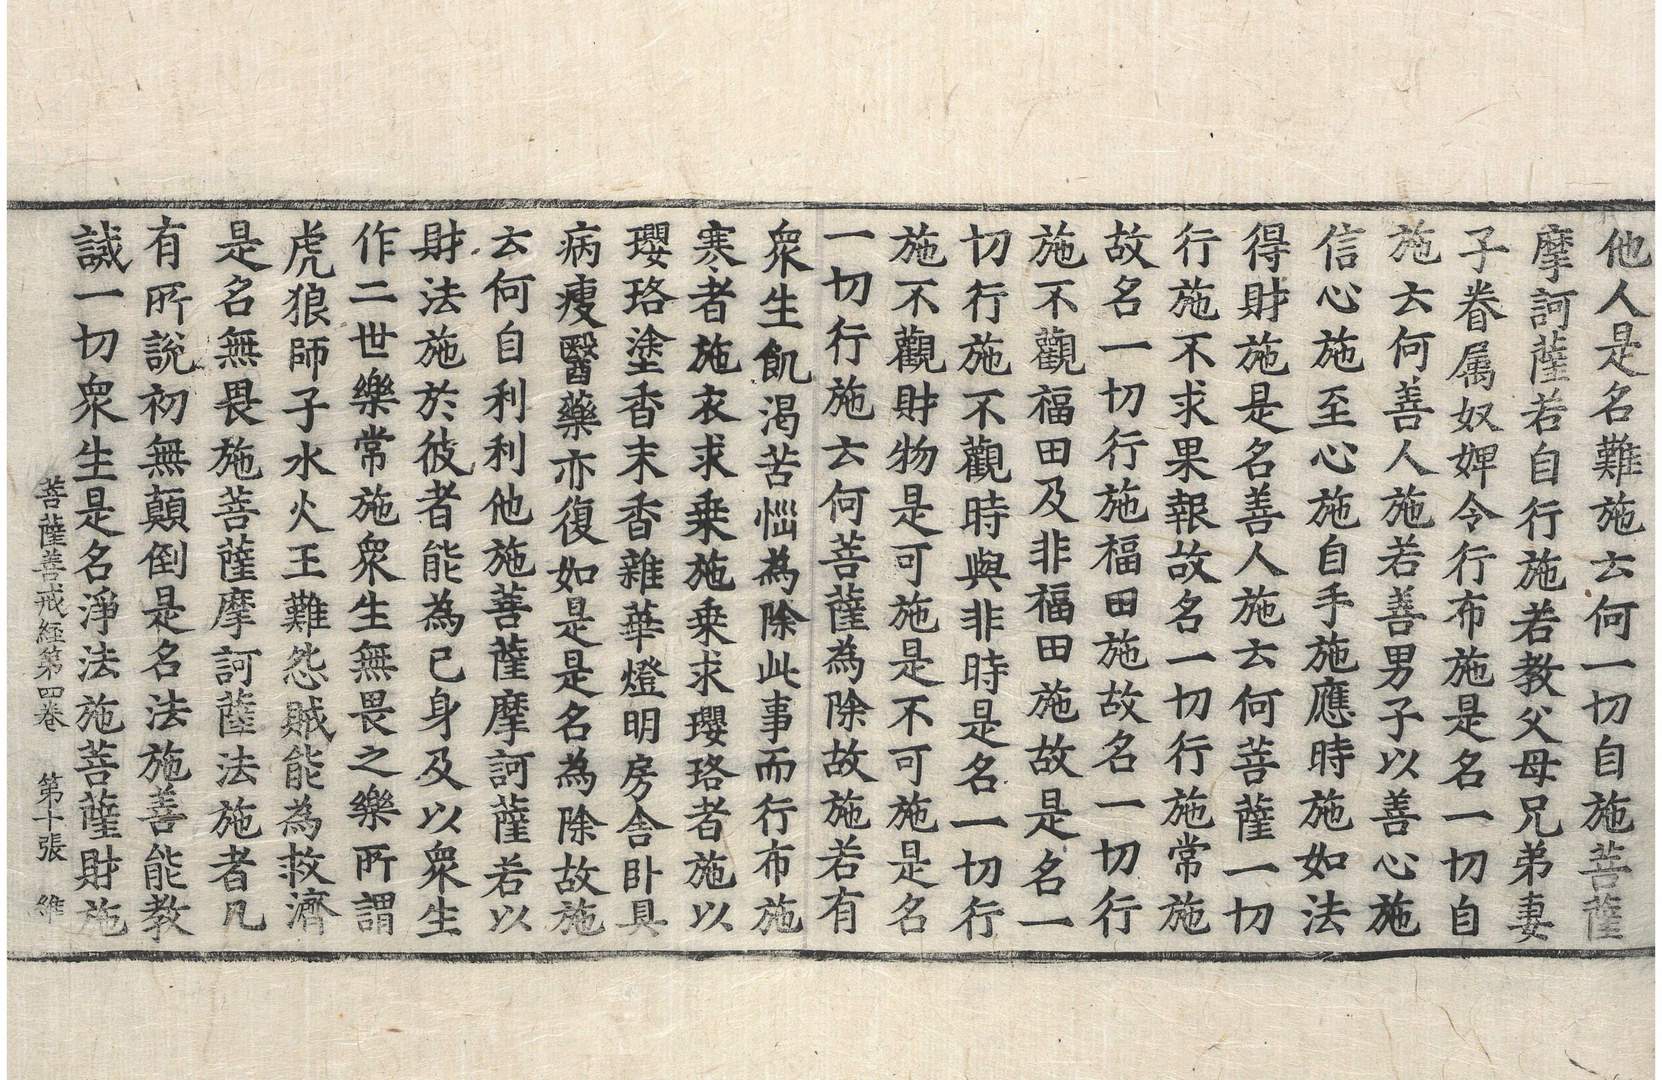 他人是名難施云何一切自施菩薩
摩訶薩若自行施若教父母兄弟妻
子眷属奴婢令行布施是名一切自
施云何善人施若善男子以善心施
信心施至心施自手施應時施如法
得財施是名善人施云何菩薩一切
行施不求果報故名一切行施常施
故名一切行施福田施故名一切行
施不觀福田及非福田施故是名一
切行施不觀時與非時是名一切行
施不觀財物是可施是不可施是名
一切行施云何菩薩為除故施若有
衆生飢渴苦惱為除此事而行布施
寒者施衣求乗施乗求瓔珞者施以
瓔珞塗香末香雜華燈明房舍卧具
病瘦醫藥亦復如是是名為除故施
云何自利利他施菩薩摩訶薩若以
財法施於彼者能為己身及以衆生
作二世樂常施衆生無畏之樂所謂
虎狼師子水火王難怨賊能為救濟
是名無畏施菩薩摩訶薩法施者凡
有所說初無顛倒是名法施善能教
誡一切衆生是名淨法施菩薩財施
菩薩善戒經第四卷　第十張　維